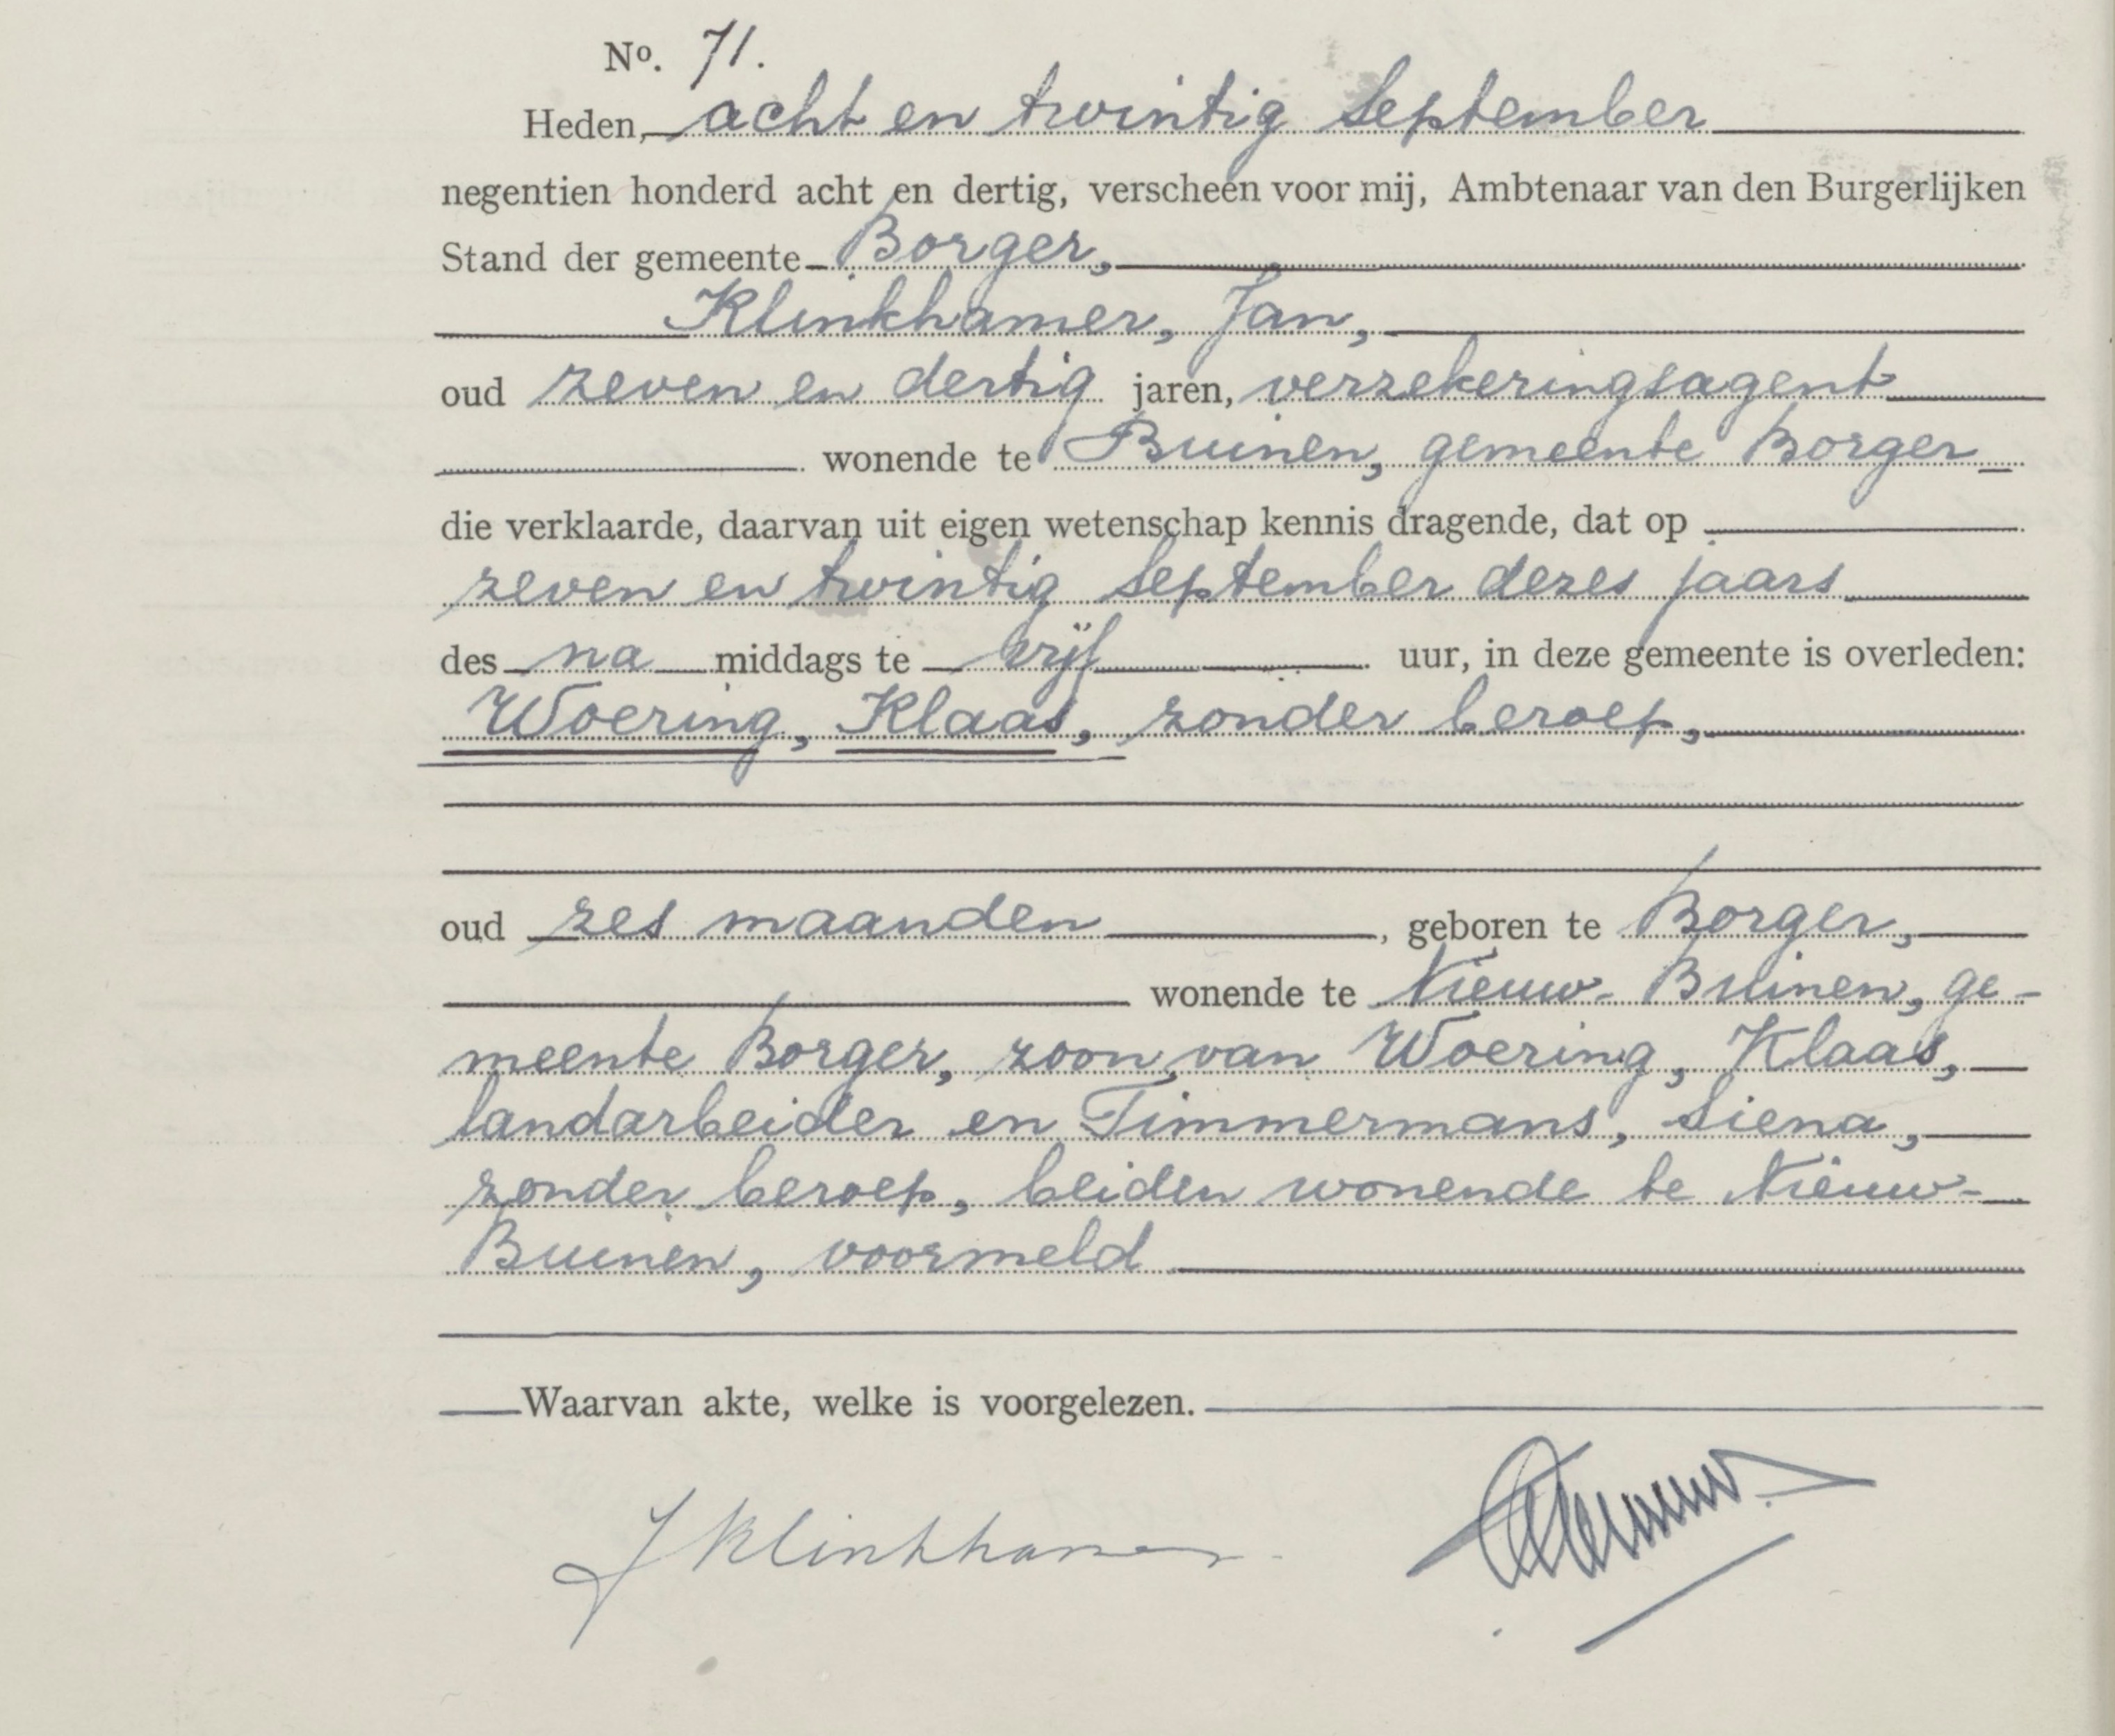 No. 71.
Heden, acht en twintig September
negentien honderd acht en dertig, verscheen voor mij, Ambtenaar van den Burgerlijken
Stand der gemeente Borger,
Klinkhamer, Jan,
oud zeven en dertig jaren, verzekeringsagent
wonende te Buinen, gemeente Borger
die verklaarde, daarvan uit eigen wetenschap kennis dragende, dat op
zeven en twintig September dezes jaars
des na middags te vijf uur, in deze gemeente is overleden:
Woering, Klaas, zonder beroep,
oud zes maanden, geboren te Borger,
wonende te Nieuw-Buinen, ge-
meente Borger, zoon van Woering, Klaas,
landarbeider en Timmermans, Siena,
zonder beroep, beiden wonende te Nieuw-
Buinen, voormeld
Waarvan akte, welke is voorgelezen.
J Klinkhamer